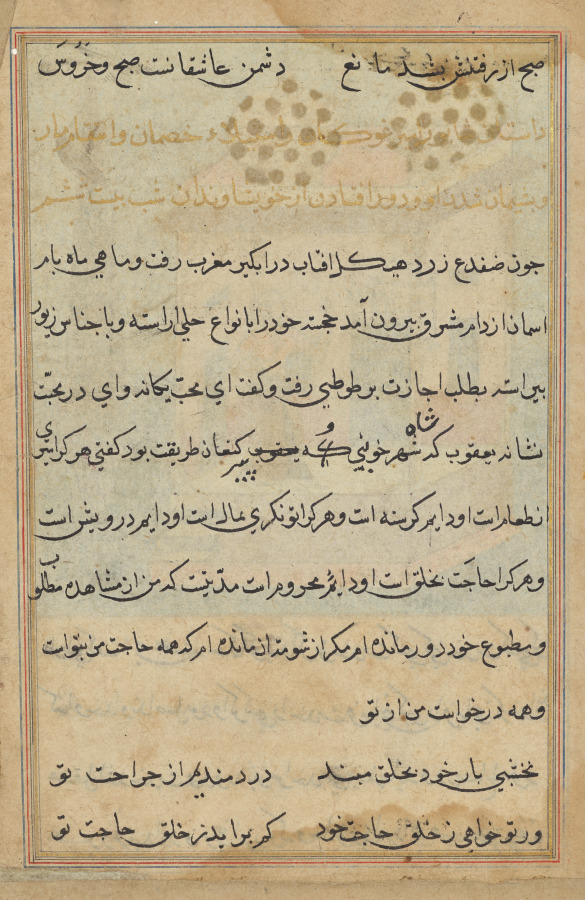 صبح از رفتنش بشد مانع دشمن عاشقانست صبح و خروس
داستان شاپور امیر غوکان خصمان و استظهار مار
و پشیمان شدن او و دور افتادن از خویشاوندان شب بیست ششم
جون ضفدع زرد هیکل افتاب در ابکیر مغرب رفت و ماهی ماه بام
اسمان از دام مشرق بیرون آمد خجسته خود را بانواع حلی اراسته و باجناس زیور
بیراسته بطلب اجازت بر طوطی رفت و کفت ای محبّ یکانه وای در محبّت
نشانه یعقوب که شاه شهر خوبی و که پیغمبر کنعان طریقت بود کفتی هر کرا سیری
از طعام است او دایم کرسنه است و هر کرا توانکری بمال است او دایم درویش است
و هر کرا حاجت بخلق است او دایم محروم است مدّتیست که من از مشاهده مطلوب
و مطبوع خود دور مانده ام مکر از شومت از مانده ام که همه حاجت من بتو است
و همه درخواست من از تو
نخشبی بار خود بخلق مبند دردمندیم از جراحت تو
ور تو خواهی ز خلق حاجت خود کم براید ز خلق حاجت تو